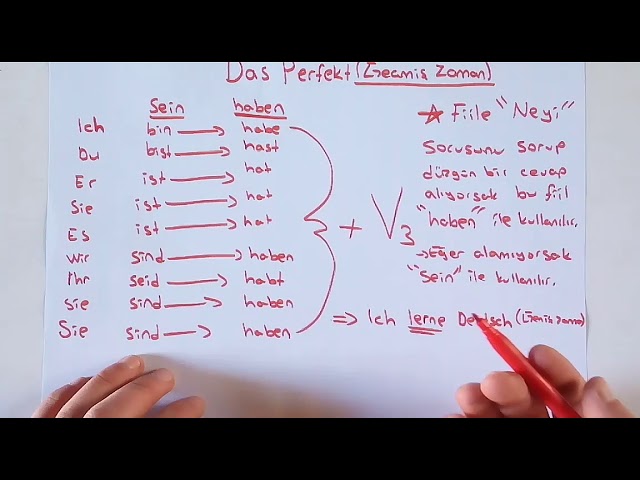 Das Perfekt (Geçmiş Zaman)
Sein haben
Ich bin → habe
Du bist → hast
Er ist → hat
Sie ist → hat
Es ist → hat
Wir sind → haben
Ihr seid → habt
sie sind → haben
Sie sind → haben
+ V3
☆ Fiile "Neyi"
sorusunu sorup
düzgün bir cevap
alıyorsak bu fiil
"haben" ile kullanılır.
→ Eğer alamıyorsak
"Sein" ile kullanılır.
⇒ Ich lerne Deutsch (Geniş zaman)